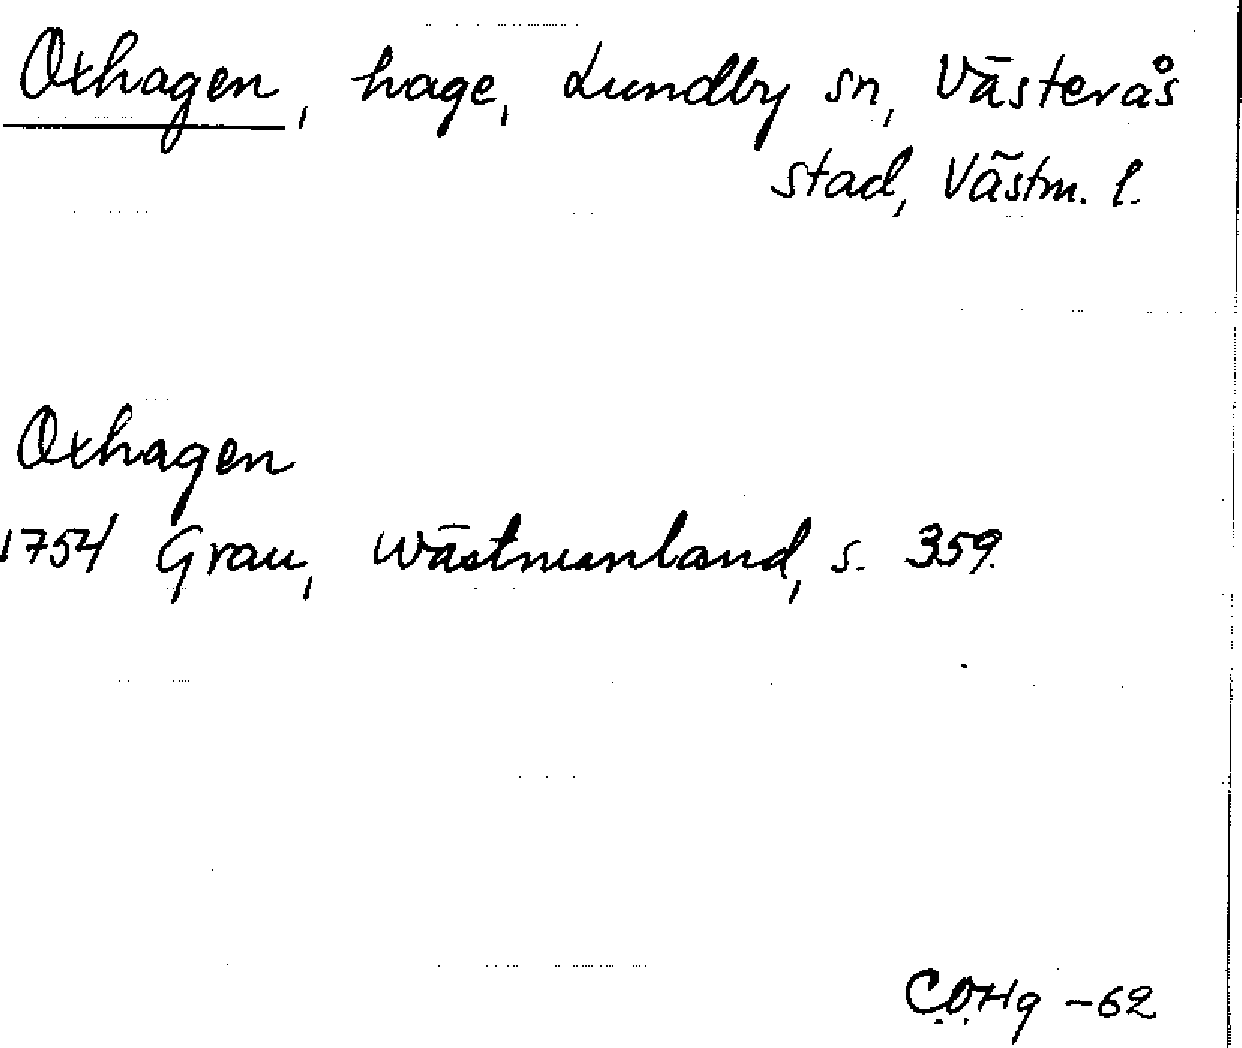 Oxhagen, hage, Lundby sn, Västerås
stad, Västm. l.
Oxhagen
1754 Grau, Wästmanland, s. 359.
C.O.Hg -62